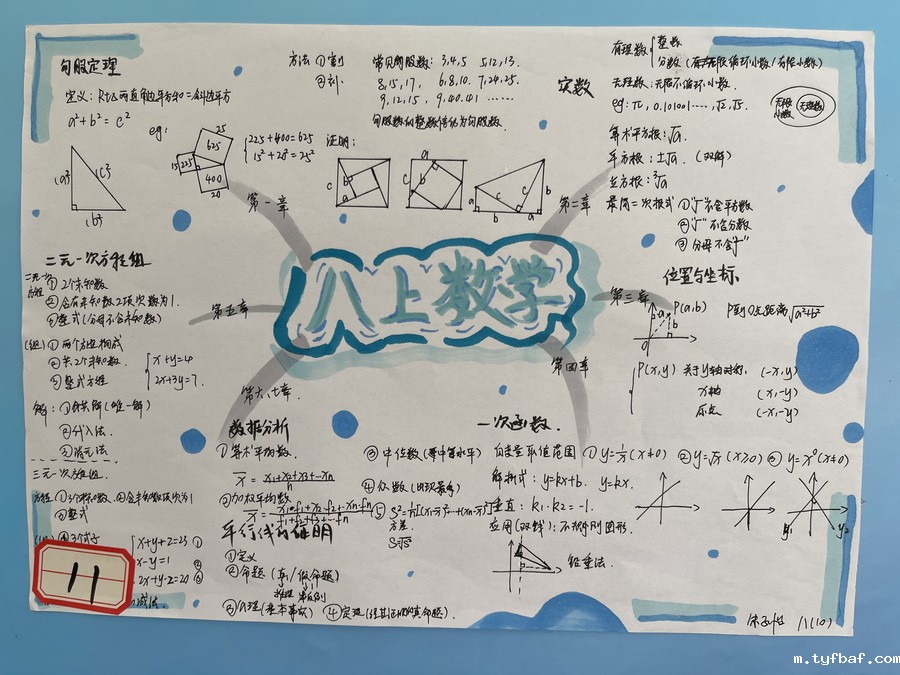 勾股定理
定义：Rt△两直角边平方和=斜边平方
a²+b²=c²
eg:
25
625
15
225
400
20
225+400=625
15²+20²=25²
方法 ①
②
常见勾股数：3,4,5 5,12,13.
8,15,17, 6,8,10. 7,24,25.
9,12,15, 9,40,41 ……
勾股数的整数倍仍为勾股数.
证明：
第一章
实数
有理数
整数
分数（有限循环小数/有限小数）
无理数：无限不循环小数.
eg: π, 0.101001…, √2, √5.
无限小数
无理数
算术平方根：√a.
平方根：±√a.（双解）
立方根：³√a
第二章
最简二次根式 ①"√"不含平方数
②"√"不含分数
③分母不含"√"
八上数学
位置与坐标
第三章
P(a,b)
P到O点距离√a²+b²
P(x,y) 关于y轴对称. (-x,y)
x轴 (x,-y)
原点 (-x,-y)
二元一次方程组
第五章
二元一次方程
①2个未知数
②含有未知数2项次数为1.
③整式（分母不含未知数）
(组) ①两个方程构成
②共2个未知数.
③整式方程
x+y=4
2x+3y=7.
解：①公共解（唯一解）
②代入法.
③消元法
三元一次方程组.
方程 ①3个未知数. ②含未知数项次为1
③整式
④3个式子
x+y+z=23 ①
x-y=1 ②
2x+y-z=20 ③
减法.
11
第六、七章
数据分析
①算术平均数.
x̄=x₁+x₂+x₃+…xₙ/n
②加权平均数
③中位数（等中等水平）
④众数（出现最多）
⑤
方差.
平行线的证明
①定义
②命题（真/假命题）
③公理（基本事实） ④定理（经过证明的真命题）.
第四章
一次函数.
自变量取值范围 ①y=1/x(x≠0) ②y=√x(x≥0) ③y=x⁰(x≠0)
解析式：y=kx+b. y=kx.
垂直：k₁·k₂=-1.
y₁
y₂
铅垂法.
八(10)
m.tyfbaf.com